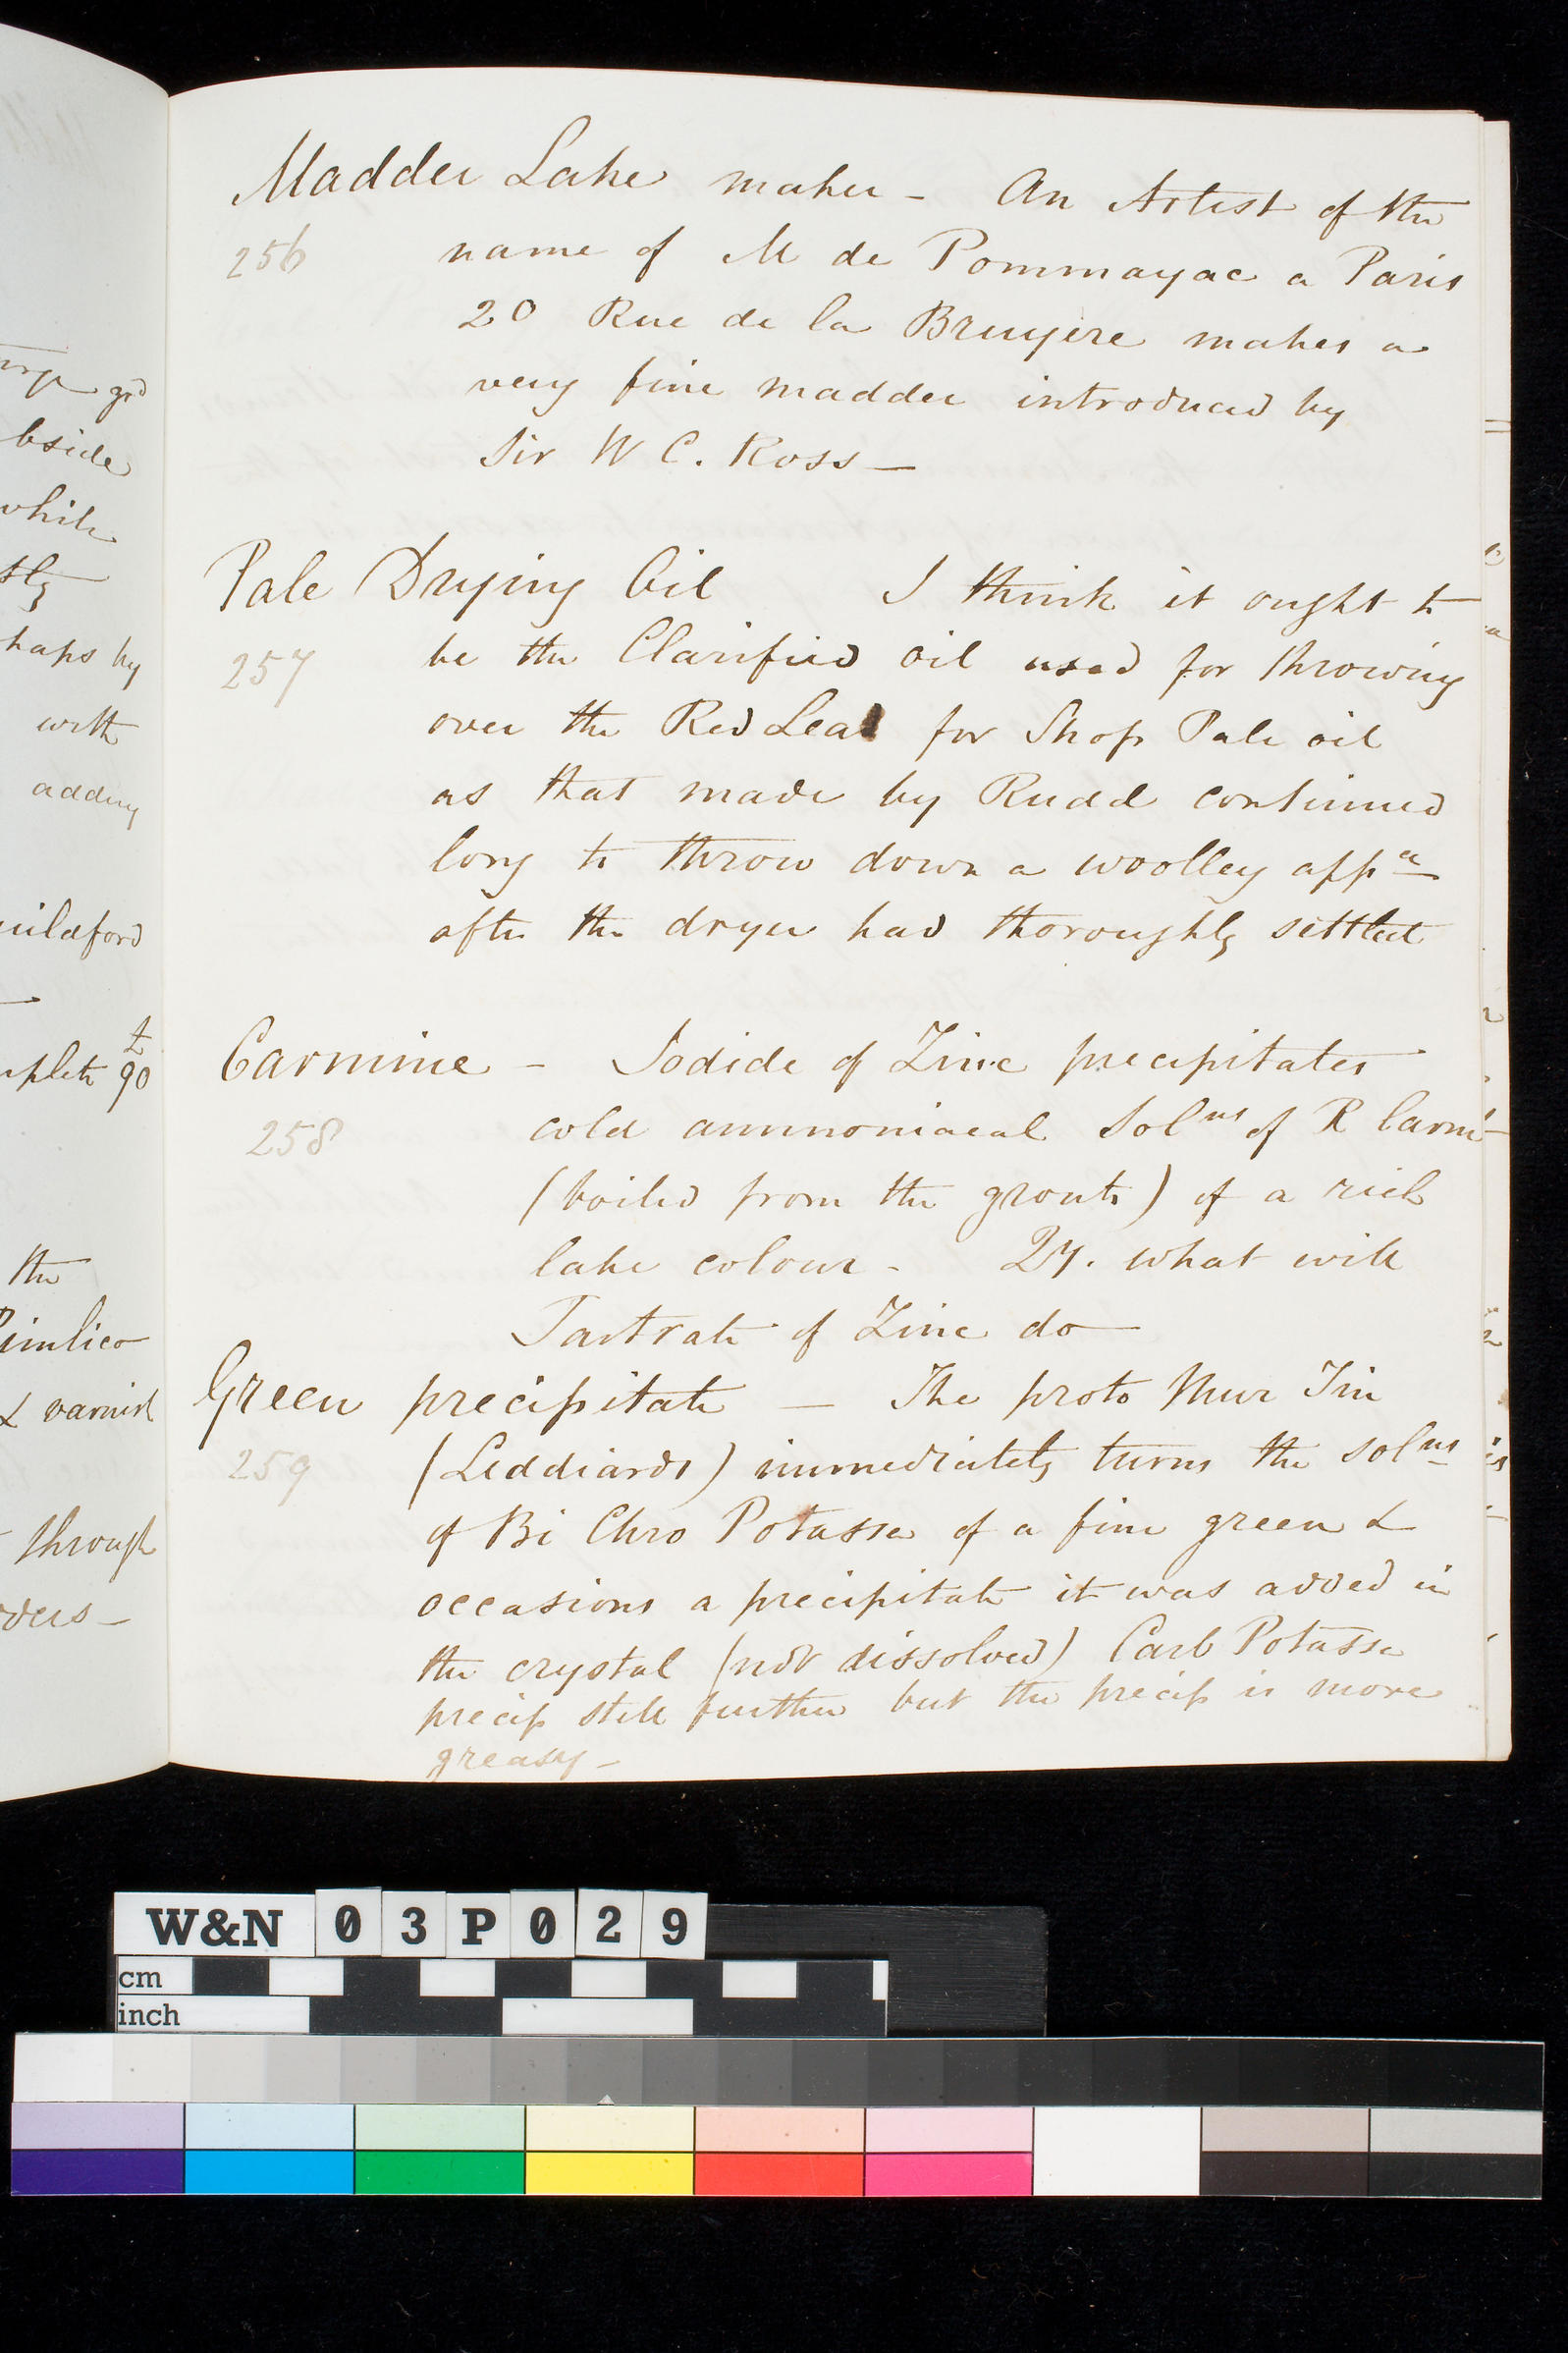 Madder Lake maker - An Artist of the
256
name of M de Pommayac a Paris
20 Rue de la Bruyere makes a
very fine madder introduced by
Sir W C. Ross —
Pale Drying Oil I think it ought to
257
be the Clarified oil used for throwing
over the Red Lead for Shop Pale oil
as that made by Rudd continued
long to throw down a woolley appce
after the dryer had thoroughly settled
Carmine - Iodide of Zinc precipitates
258
cold ammoniacal Solns of R Carm
(boiled from the grouts) of a rich
lake colour - Qy. what will
Tartrate of Zinc do —
Green precipitate — The proto Mur Tin
259
(Leddiards) immediately turns the solns
of Bi Chro Potassa of a fine green &
occasions a precipitate it was added in
the crystal (not dissolved) Carb Potassa
precip still further but the precip is more
greasy -
bside
while
haps by
with
adding
uildford
£
mplete 90
the
Pimlico
& varnish
through
W&N 03P029
cm
inch